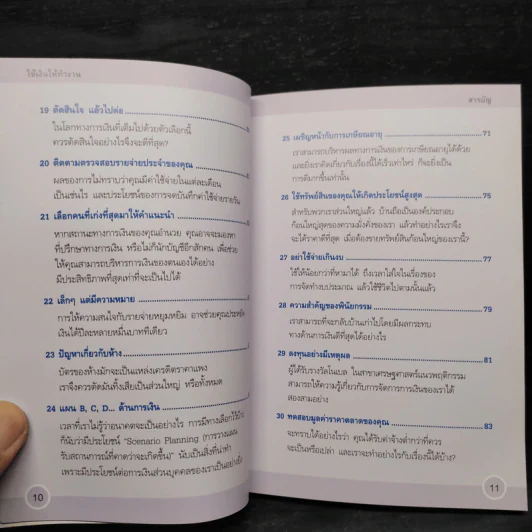 ใช้เงินให้ทำงาน
19 ตัดสินใจ แล้วไปต่อ
ในโลกทางการเงินที่เต็มไปด้วยตัวเลือกนี้
ควรตัดสินใจอย่างไรจึงจะดีที่สุด?
20 ติดตามตรวจสอบรายจ่ายประจำของคุณ
ผลของการไม่ทราบว่าคุณมีค่าใช้จ่ายในแต่ละเดือน
เป็นเช่นไร และประโยชน์ของการจดบันทึกค่าใช้จ่ายรายวัน
21 เลือกคนที่เก่งที่สุดมาให้คำแนะนำ
หากสถานะทางการเงินของคุณอำนวย คุณอาจจะมองหา
ที่ปรึกษาทางการเงิน หรือไม่ก็นักบัญชีอีกสักคน เพื่อช่วย
ให้คุณสามารถบริหารการเงินของตนเองได้อย่าง
มีประสิทธิภาพที่สุดเท่าที่จะเป็นไปได้
22 เล็กๆ แต่มีความหมาย
การให้ความสนใจกับรายจ่ายหยุมหยิม อาจช่วยคุณประหยัด
เงินได้ปีละหลายหมื่นบาททีเดียว
23 ปัญหาเกี่ยวกับห้าง
บัตรของห้างมักจะเป็นแหล่งเครดิตราคาแพง
เราจึงควรตัดมันทิ้งเสียเป็นส่วนใหญ่ หรือทั้งหมด
24 แผน B, C, D... ด้านการเงิน
เวลาที่เราไม่รู้ว่าอนาคตจะเป็นอย่างไร การมีทางเลือกไว้บ้าง
ก็นับว่ามีประโยชน์ "Scenario Planning (การวางแผน
รับสถานการณ์ที่คาดว่าจะเกิดขึ้น)" นับเป็นสิ่งที่น่าทำ
เพราะมีประโยชน์ต่อการเงินส่วนบุคคลของเราเป็นอย่างยิ่ง
10
สารบัญ
25 เผชิญหน้ากับการเกษียณอายุ 71
เราสามารถบริหารผลทางการเงินของการเกษียณอายุได้ด้วย
และยิ่งเราคิดเกี่ยวกับเรื่องนี้ได้เร็วเท่าไหร่ ก็จะยิ่งเป็น
การดีมากขึ้นเท่านั้น
26 ใช้ทรัพย์สินของคุณให้เกิดประโยชน์สูงสุด 75
สำหรับพวกเราส่วนใหญ่แล้ว บ้านถือเป็นองค์ประกอบ
ก้อนใหญ่สุดของความมั่งคั่งของเรา แล้วทำอย่างไรเราจึง
จะได้ราคาดีที่สุด เมื่อต้องขายทรัพย์สินก้อนใหญ่ของเรานี้?
27 อย่าใช้จ่ายเกินงบ 77
ใช้ให้น้อยกว่าที่หามาได้ ถึงเวลาใส่ใจในเรื่องของ
การจัดทำงบประมาณ แล้วใช้ชีวิตไปตามนั้นแล้ว
28 ความสำคัญของพินัยกรรม 79
เราสามารถที่จะกลับบ้านเก่าไปโดยมีผลกระทบ
ทางด้านการเงินที่ดีที่สุดได้อย่างไร
29 ลงทุนอย่างมีเหตุผล 81
ผู้ได้รับรางวัลโนเบล ในสาขาเศรษฐศาสตร์แนวพฤติกรรม
สามารถให้ความรู้เกี่ยวกับการจัดการการเงินของเราได้
สองสามอย่าง
30 ทดสอบมูลค่าราคาตลาดของคุณ 83
จะทราบได้อย่างไรว่า คุณได้รับค่าจ้างต่ำกว่าที่ควร
จะเป็นหรือเปล่า และเราจะทำอย่างไรกับเรื่องนี้ได้บ้าง?
11